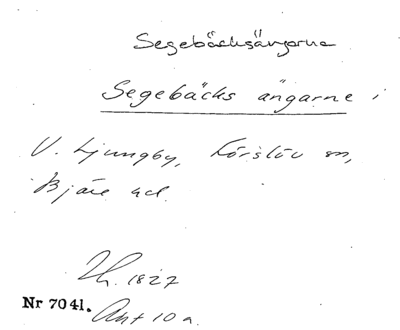 Segebäcksängarne
Segebäcks ängarne i
V. Ljungby, Förslöv sn,
Bjäre hd.
Lh. 1827
Nr 7041. Akt 10 a.